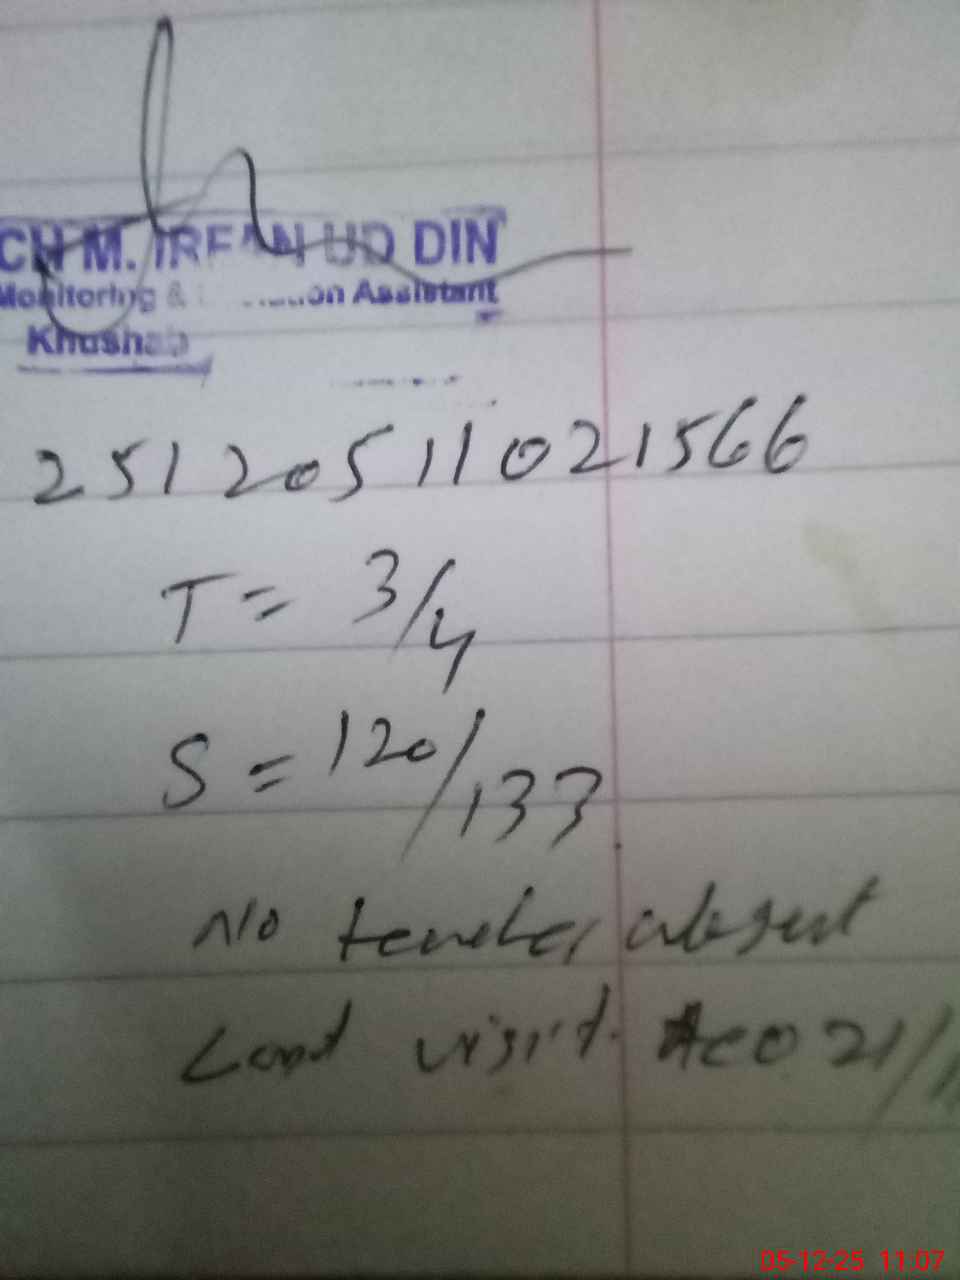 CH M. IRFAN UD DIN
Monitoring & Assistant
Khushab
25120511021566
T = 3/4
S = 120/133
No teacher absent
Last visit. AEO 21/11
05-12-25 11:07